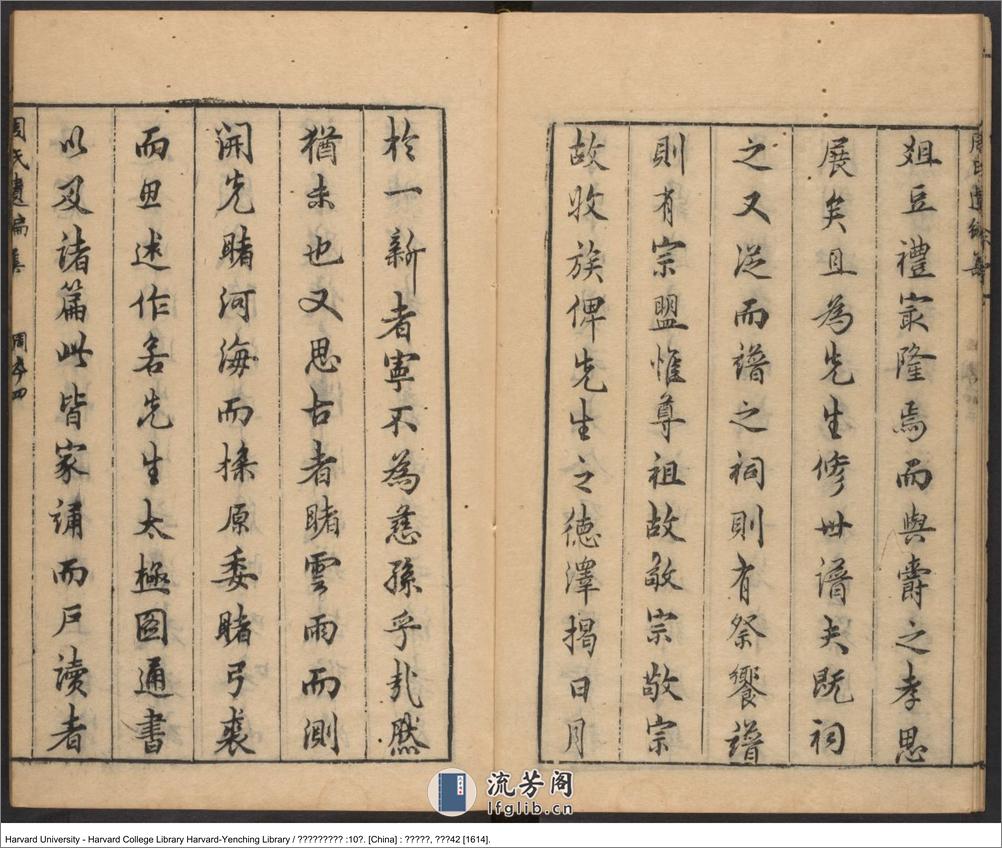 俎豆禮宲隆焉而與爵之孝思
展矣且為先生修世譜夫既祠
之又從而譜之祠則有祭饗譜
則有宗盟惟尊祖故敬宗敬宗
故收族俾先生之德澤揭日月
於一新者寧不為慈孫乎哉然
猶未也又思古者睹雲雨而測
淵先睹河海而探原委睹弓裘
而思述作若先生太極圖通書
以及諸篇此皆家誦而戶讀者
周氏遺編集
周序四
流芳阁
lfglib.cn
Harvard University - Harvard College Library Harvard-Yenching Library / ????????? :10?. [China] : ?????, ???42 [1614].